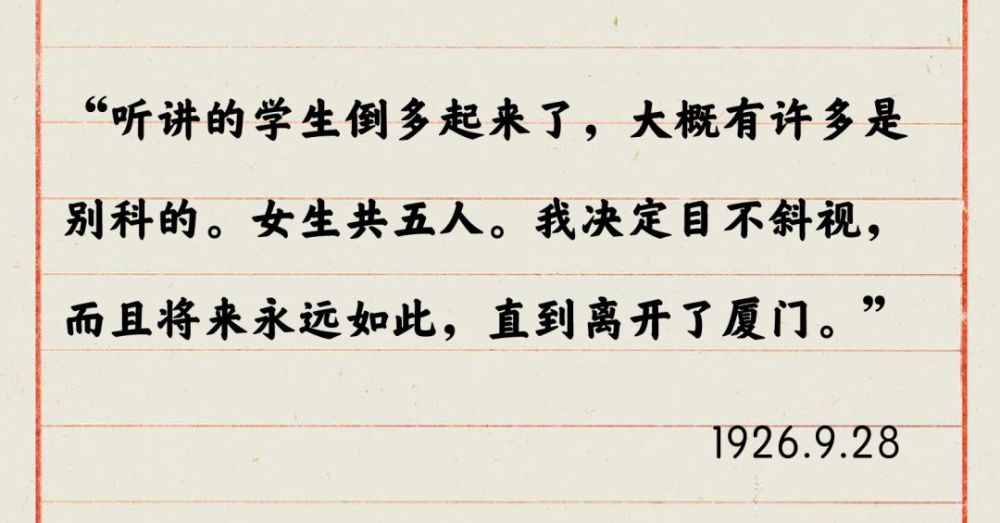 “听讲的学生倒多起来了，大概有许多是
别科的。女生共五人。我决定目不斜视，
而且将来永远如此，直到离开了厦门。”
1926.9.28